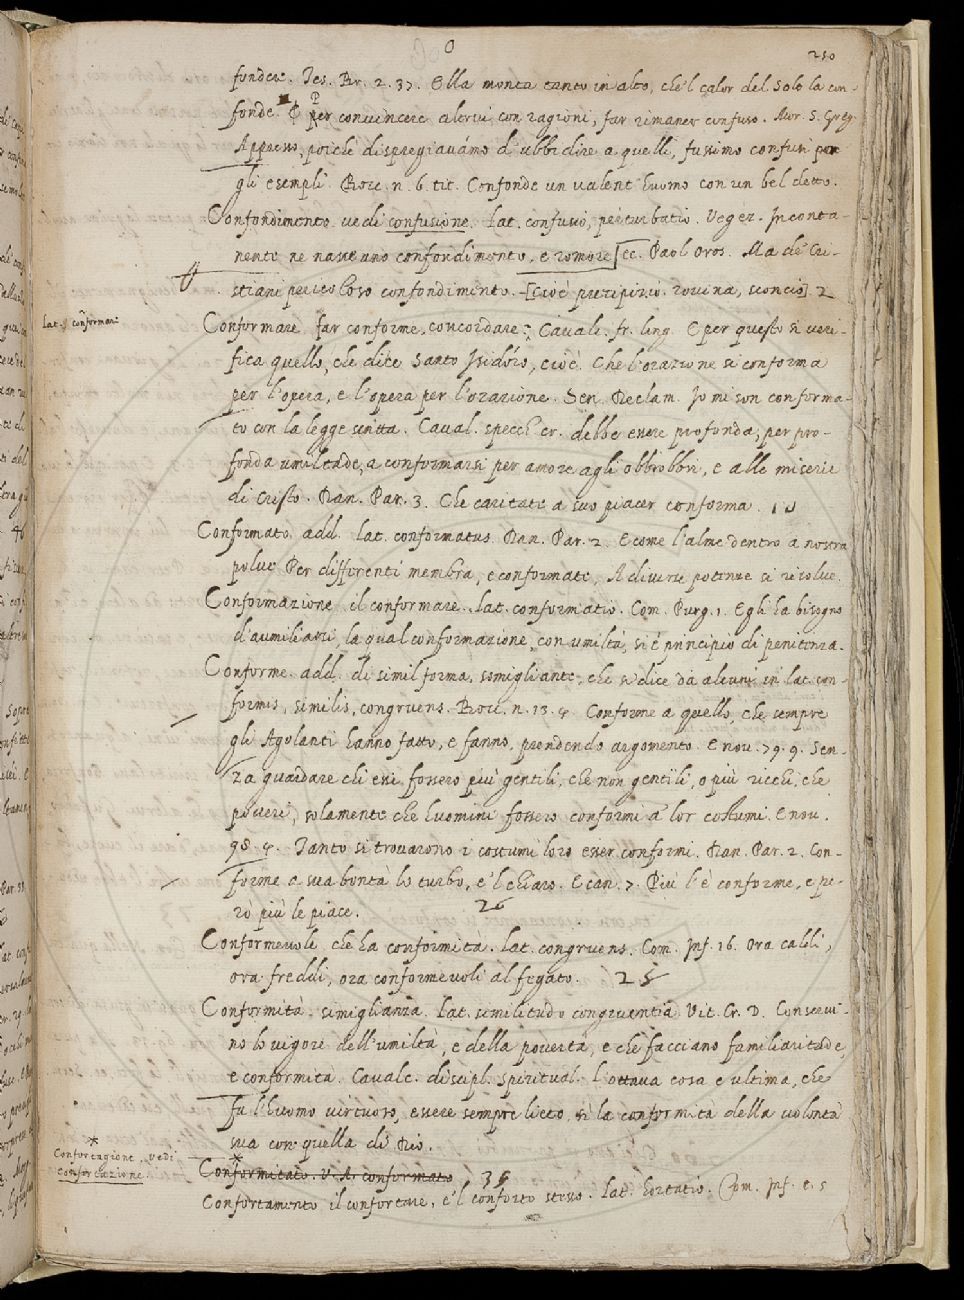 250
fondere. Tes. Br. 2. 37. Ella monta tanto in alto, che'l calor del Sole la con-
fonde. E per convincere altrui con ragioni, far rimaner confuso. Mor. S. Greg.
Appresso, poiché dispregiavámo d'ubbidire a quelli, fussimo confusi per
gli esempli. Bocc. n. 6. tit. Confonde un valent'huomo con un bel detto.
Confondimento vedi confusione. Lat. confusio, perturbatio. Veger. Incontanente
nente ne nascono confondimento, e romore [ec. Paol Oros. Ma de' Cri-
stiani pericoloso confondimento. [cioè precipizio rovina, sconcio] 2
Lat. conformari
Conformare. far conforme, concordare. Cavalc. fr. ling. E per questo si veri-
fica quello, che dice Santo Isidoro, cioè. Che l'orazione si conforma
per l'opera, e l'opera per l'orazione. Sen. Declam. Io mi son conforma-
to con la legge scritta. Caval. specch. cr. debbe essere profonda, per pro-
fonda umiltade, a conformarsi per amore agli obbrobbri, e alle miserie
di Cristo. Dan. Par. 3. Che caritate a suo piacer conforma.
Conformato add. Lat. conformatus. Dan. Par. 2. E come l'alme dentro a nostra
polve Per differenti membra, e conformate, A diverse potenze si risolve.
Conformazione. il conformare. Lat. conformatio. Com. Purg. 1. Egli ha bisogno
d'aumiliarsi, la qual conformazione, con umiltà, si è principio di penitenza.
Conforme. add. di simil forma, somigliante, che si dice da alcuni in lat. con-
formis, similis, congruens. Bocc. n. 13. 4. Conforme a quello, che sempre
gli Agolanti hanno fatto, e fanno, prendendo argomento. E nov. 79. 9. Sen-
za guardare chi essi fossero più gentili, che non gentili, o più ricchi, che
poveri, solamente che huomini fossero conformi a' lor costumi. E nov.
98. 4. Tanto si trovarono i costumi loro esser conformi. Dan. Par. 2. Con-
forme a sua bontà lo turbo, e'l chiaro. E can. 7. Più l'è conforme, e pe-
rò più le piace. 26
Conformevole, che ha conformità. Lat. congruens. Com. Inf. 16. Ora caldi,
ora freddi, ora conformevoli al fegato. 25
Conformità. simiglianza. Lat. similitudo congruentia. Vit. Cr. D. Conservi-
no lo vigore dell'umiltà, e della povertà, e che facciano familiaritade,
e conformità. Cavalc. discipl. spiritual. l'ottava cosa e ultima, che
fa l'huomo virtuoso, essere sempre lieto, si è la conformità della volontà
sua con quella di Dio.
* Confortagione. vedi
confortazione.
* Conformitato. V. A. conformato 35
Confortamento il confortare, e'l conforto stesso. Lat. hortatio. Com. Inf. c. 5